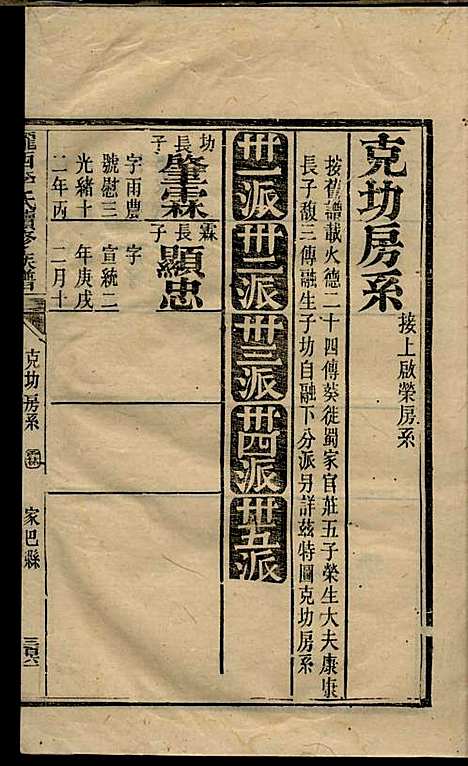 克功房系
接上啟榮房系
按舊譜載火德二十四傳葵徙蜀家官莊五子榮生大夫康康
長子馥三傳融生子功自融下分派另詳茲特圖克功房系
卅一派
卅二派
卅三派
卅四派
卅五派
功長子
肇霖
字雨農
號慰三
光緒十
二年丙
霖長子
顯忠
字
宣統二
年庚戌
二月十
隴西李氏續修族譜
克功房系
家巴縣